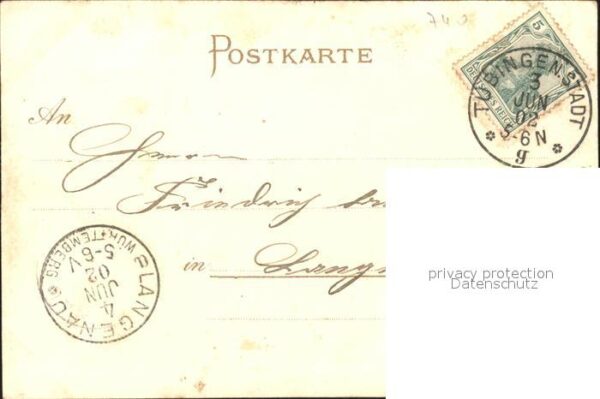 74
POSTKARTE
5
DEUTSCHES REICH
TÜBINGEN STADT
3
JUN
02
5-6 N
g
An
Herrn
Friedrich
in Lang
LANGENAU
WÜRTTEMBERG
4
JUN
02
5-6 V
privacy protection
Datenschutz